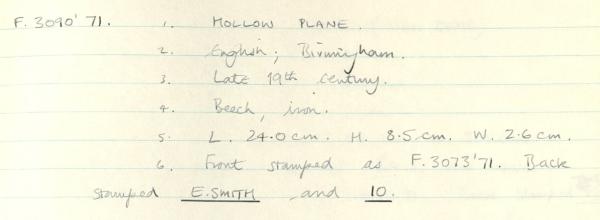 F. 3090' 71. 1. HOLLOW PLANE.
2. English; Birmingham.
3. Late 19th century.
4. Beech, iron.
5. L. 24.0 cm. H. 8.5 cm. W. 2.6 cm.
6. Front stamped as F. 3073'71. Back
stamped E. SMITH and 10.